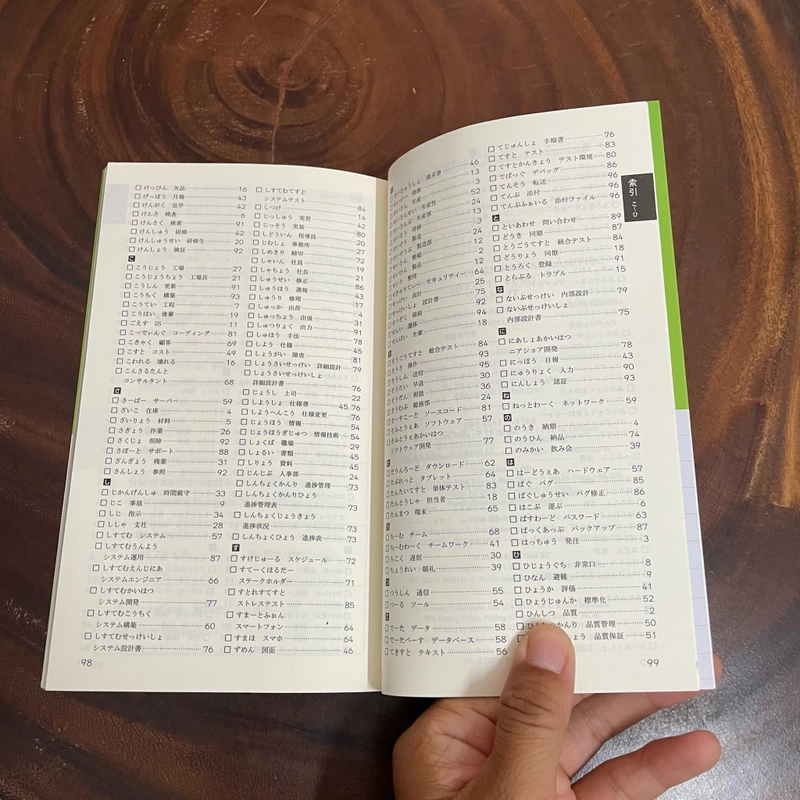 □ けっぴん 欠品 16
□ げっぽう 月報 43
□ けんがく 見学 42
□ けんさ 検査 6
□ けんさく 検索 91
□ けんしゅう 研修 42
□ けんしゅうせい 研修生 20
□ けんしょう 検証 92
こ
□ こうじょう 工場 27
□ こうじょうちょう 工場長 21
□ こうしん 更新 91
□ こうちく 構築 93
□ こうてい 工程 7
□ こうはい 後輩 19
□ ごえす 5S 11
□ こーでぃんぐ コーディング 81
□ こきゃく 顧客 69
□ こすと コスト 49
□ こわれる 壊れる 16
□ こんさるたんと
コンサルタント 68
さ
□ さーばー サーバー 59
□ ざいこ 在庫 4
□ ざいりょう 材料 5
□ さぎょう 作業 26
□ さくじょ 削除 92
□ さぽーと サポート 88
□ ざんぎょう 残業 31
□ さんしょう 参照 92
し
□ じかんげんしゅ 時間厳守 33
□ じこ 事故 9
□ しじ 指示 34
□ ししゃ 支社 28
□ しすてむ システム 57
□ しすてむうんよう
システム運用 87
□ しすてむえんじにあ
システムエンジニア 66
□ しすてむかいはつ
システム開発 77
□ しすてむこうちく
システム構築 60
□ しすてむせっけいしょ
システム設計書 76
98
□ しすてむてすと
システムテスト 84
□ しつけ 14
□ じっしゅう 実習 42
□ じっそう 実装 80
□ しどういん 指導員 20
□ じむしょ 事務所 27
□ しめきり 締切 72
□ しゃいん 社員 19
□ しゃちょう 社長 21
□ しゅうせい 修正 86
□ しゅうほう 週報 43
□ しゅうり 修理 17
□ しゅっか 出荷 4
□ しゅっちょう 出張 31
□ しゅつりょく 出力 91
□ しゅほう 手法 74
□ しよう 仕様 45
□ しょうがい 障害 81
□ しょうさいせっけい 詳細設計 79
□ しょうさいせっけいしょ
詳細設計書 76
□ じょうし 上司 22
□ しようしょ 仕様書 45,76
□ しようへんこう 仕様変更 76
□ じょうほう 情報 54
□ じょうほうぎじゅつ 情報技術 54
□ しょくば 職場 29
□ しょるい 書類 45
□ しりょう 資料 45
□ じんじぶ 人事部 24
□ しんちょくかんり 進捗管理 73
□ しんちょくかんりひょう
進捗管理表 73
□ しんちょくじょうきょう
進捗状況 73
□ しんちょくひょう 進捗表 73
す
□ すけじゅーる スケジュール 72
□ すてーくほるだー
ステークホルダー 71
□ すとれすてすと
ストレステスト 85
□ すまーとふぉん
スマートフォン 64
□ すまほ スマホ 64
□ ずめん 図面 46
請求書 46
清掃 13
生産 52
生産性 24
生産部 3
清掃 13
製造 2
製造部 24
整頓 12
製品 2
整理 12
セキュリティー 64
設計 75
設計書 75
接続 92
遷移 94
せんぱい 先輩 18
□ そうごうてすと 総合テスト 84
操作 93
□ そうしん 送信 95
早退 30
相談 36
総務部 24
ソースコード 81
□ そふとうぇあ ソフトウェア 57
□ そふとうぇあかいはつ
ソフトウェア開発 77
□ だうんろーど ダウンロード 62
□ たぶれっと タブレット 64
□ たんたいてすと 単体テスト 83
□ たんとうしゃ 担当者 18
□ たんまつ 端末 65
□ ちーむ チーム 68
□ ちーむわーく チームワーク 41
□ ちこく 遅刻 30
□ ちょうれい 朝礼 39
つ
□ つうしん 通信 55
□ つーる ツール 54
て
□ でーた データ 58
□ でーたべーす データベース 58
□ てきすと テキスト 56
□ てじゅんしょ 手順書 76
□ てすと テスト 83
□ てすとかんきょう テスト環境 80
□ でばっぐ デバッグ 86
□ てんそう 転送 96
□ てんぷ 添付 96
□ てんぷふぁいる 添付ファイル 96
と
□ といあわせ 問い合わせ 89
□ どうき 同期 94
□ とうごうてすと 統合テスト 84
□ どうりょう 同僚 18
□ とうろく 登録 91
□ とらぶる トラブル 15
な
□ ないぶせっけい 内部設計 79
□ ないぶせっけいしょ
内部設計書 75
に
□ にあしょあかいはつ
ニアショア開発 78
□ にっぽう 日報 43
□ にゅうりょく 入力 90
□ にんしょう 認証 93
ね
□ ねっとわーく ネットワーク 59
の
□ のうき 納期 4
□ のうひん 納品 74
□ のみかい 飲み会 39
は
□ はーどうぇあ ハードウェア 57
□ ばぐ バグ 85
□ ばぐしゅうせい バグ修正 86
□ はこぶ 運ぶ 6
□ ぱすわーど パスワード 63
□ ばっくあっぷ バックアップ 87
□ はっちゅう 発注 3
ひ
□ ひじょうぐち 非常口 8
□ ひなん 避難 9
□ ひょうか 評価 41
□ ひょうじゅんか 標準化 52
□ ひんしつ 品質 2
品質管理 50
品質保証 51
99
索引 こ〜ひ